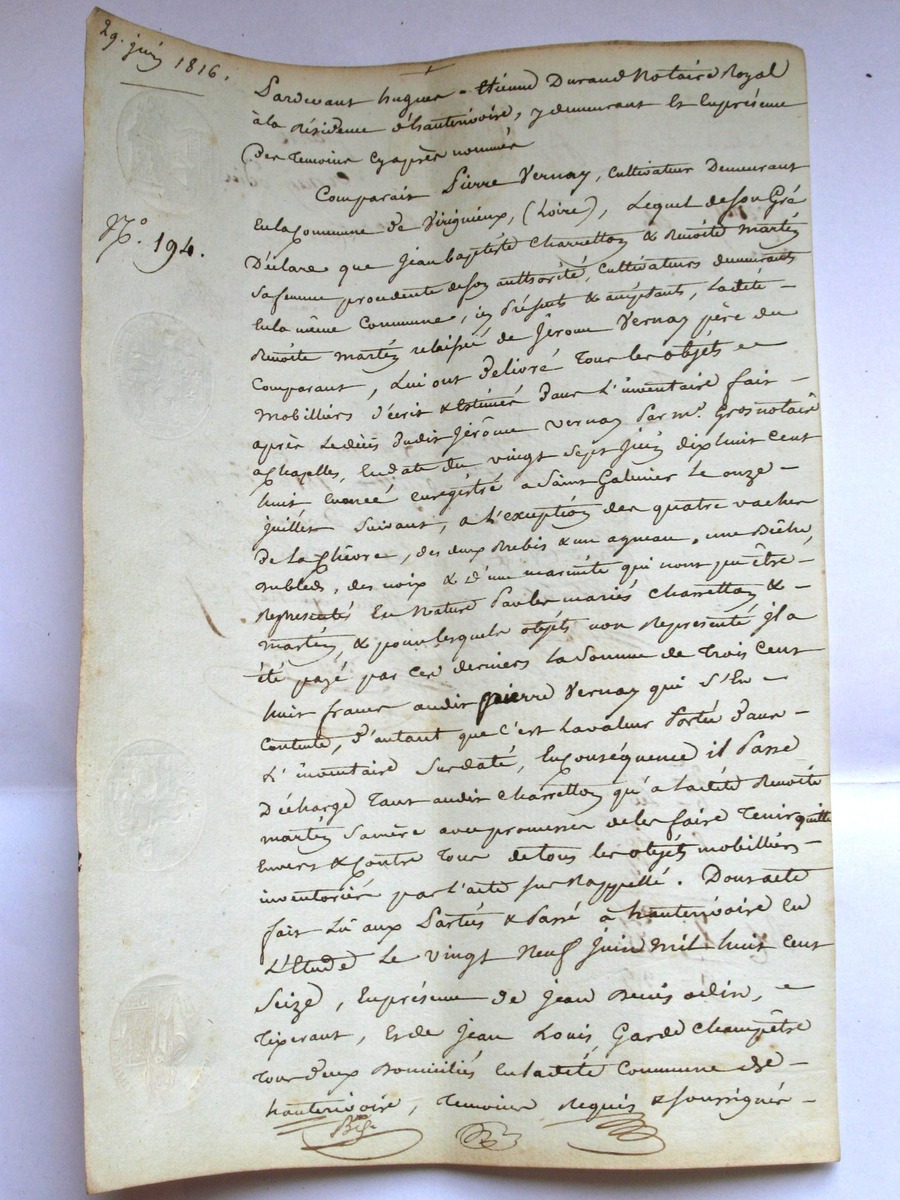 29. juin 1816.
Pardevant hugues = étienne Durand Notaire Royal
à la Résidence d'hauterivoire, y demeurant Et En présence
Des temoins cy après nommés
N.° 194.
Comparait Pierre Vernay, Cultivateur Demeurant
En la Commune de Virigneux, (Loire), Lequel de son Gré
Déclare que jean baptiste Charretton & Benoite martin
sa femme procedente de son authorité, Cultivateurs demeurants
En la même Commune, icy Présents & acceptants, Ladite
Benoite martin relaissée de jérome Vernay père du
Comparant, Lui ont Delivré Tous les objets
Mobilliers Décrit & Estimés Dans L'inventaire fait
après Le décès Dudit jérome Vernay Par m.e Gros notaire
a Chazelles, En date du vingt sept juin dix huit cent
huit Enoncé enregistré a Saint Galmier Le onze
juillet Suivant, a L'exception des quatre vaches
De la Chèvre, des deux Brebis & un agneau, une Bêche,
Du bled, des noix & d'une marmite qui n'ont pu être
Représentés En Nature Par les mariés Charretton &
martin, & pour lesquels objets non Représenté il a
été payé par Ces derniers La Somme de Trois Cent
huit francs audit pierre Vernay qui S'En
Contente, D'autant que C'est La valeur Portée Dans
L'inventaire Sus daté, En Conséquence il Passe
Décharge Tant audit Charretton qu'a Ladite Benoite
martin Sa mère avec promesse de les faire Tenir quitte
Envers & Contre Tous de tous les objets mobilliers
inventoriés par L'acte sus Rappellé. Dont acte
fait Lû aux Parties & Passé à hauterivoire En
L'Etude Le vingt Neuf juin Mil huit Cent
Seize, En présence de jean Denis
Tixerant, Et de jean Louis, Garde Champêtre
Tous deux Domiciliés En ladite Commune De
hauterivoire, Temoins Requis & soussignés